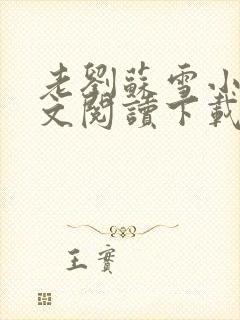 老劉蘇雪小
文閱讀下載
王實